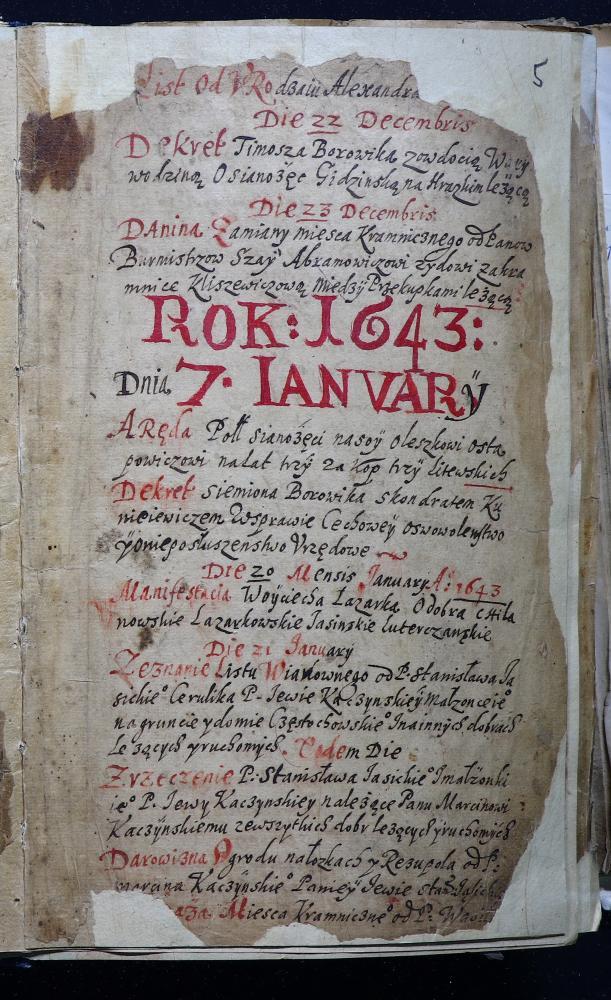 5
List od VRodzaiu Alexandra
Die 22 Decembris
Dekret Timosza Borowika zowdocią
wodziną O sianożęc Gidzinską na Hrazkim leżącą
Die 23 Decembris
DANINA Zamiany miesca Kramnicznego od Panow
Burmistrzow Szay Abramowiczowi żydowi zahra
mnice Kliszewiczową między Przekupkami leżącą
ROK: 1643:
Dnia 7. IANVARÿ
ARęda Poll sianożęci nasoÿ oleszkowi osta
powiczowi nalat trzÿ za kop trzÿ litewskich
Dekret siemiona Borowika skondratem Ku
nieiewiczem Wsprawie Cechoweÿ oswowolenstwo
ÿ onieposłuszenstwo Vrzędowe
Die 20 Mensis January A: 1643
Manifestacia Woÿciecha Łazarka, O dobra
nowskie Lazarkowskie Iasinskie luterczanskie
Die 21 January
Zeznanie Listu Wianownego od P. Stanisława Ja
sichieº Cerulika P. Jewie Kaczynskieÿ Małzonceieº
na gruncie y domie Częstochowskieº Inainnÿch dobrach
Leżącÿch ÿ ruchomÿch. Eodem Die
Zrzeczenie P. Stanisława Iasichieº Imałzonki
ieº P. Jewy Kaczynskiey należące Panu Marcinowi
Kaczÿnskiemu zewszytkich dobr leżącÿch ÿruchomÿch
Darowizna Ogrodu nałozkach y Rezupola od P:
Marcina Kaczÿnskieº Panieÿ Jewie
Miesca Kramniczneº od P: